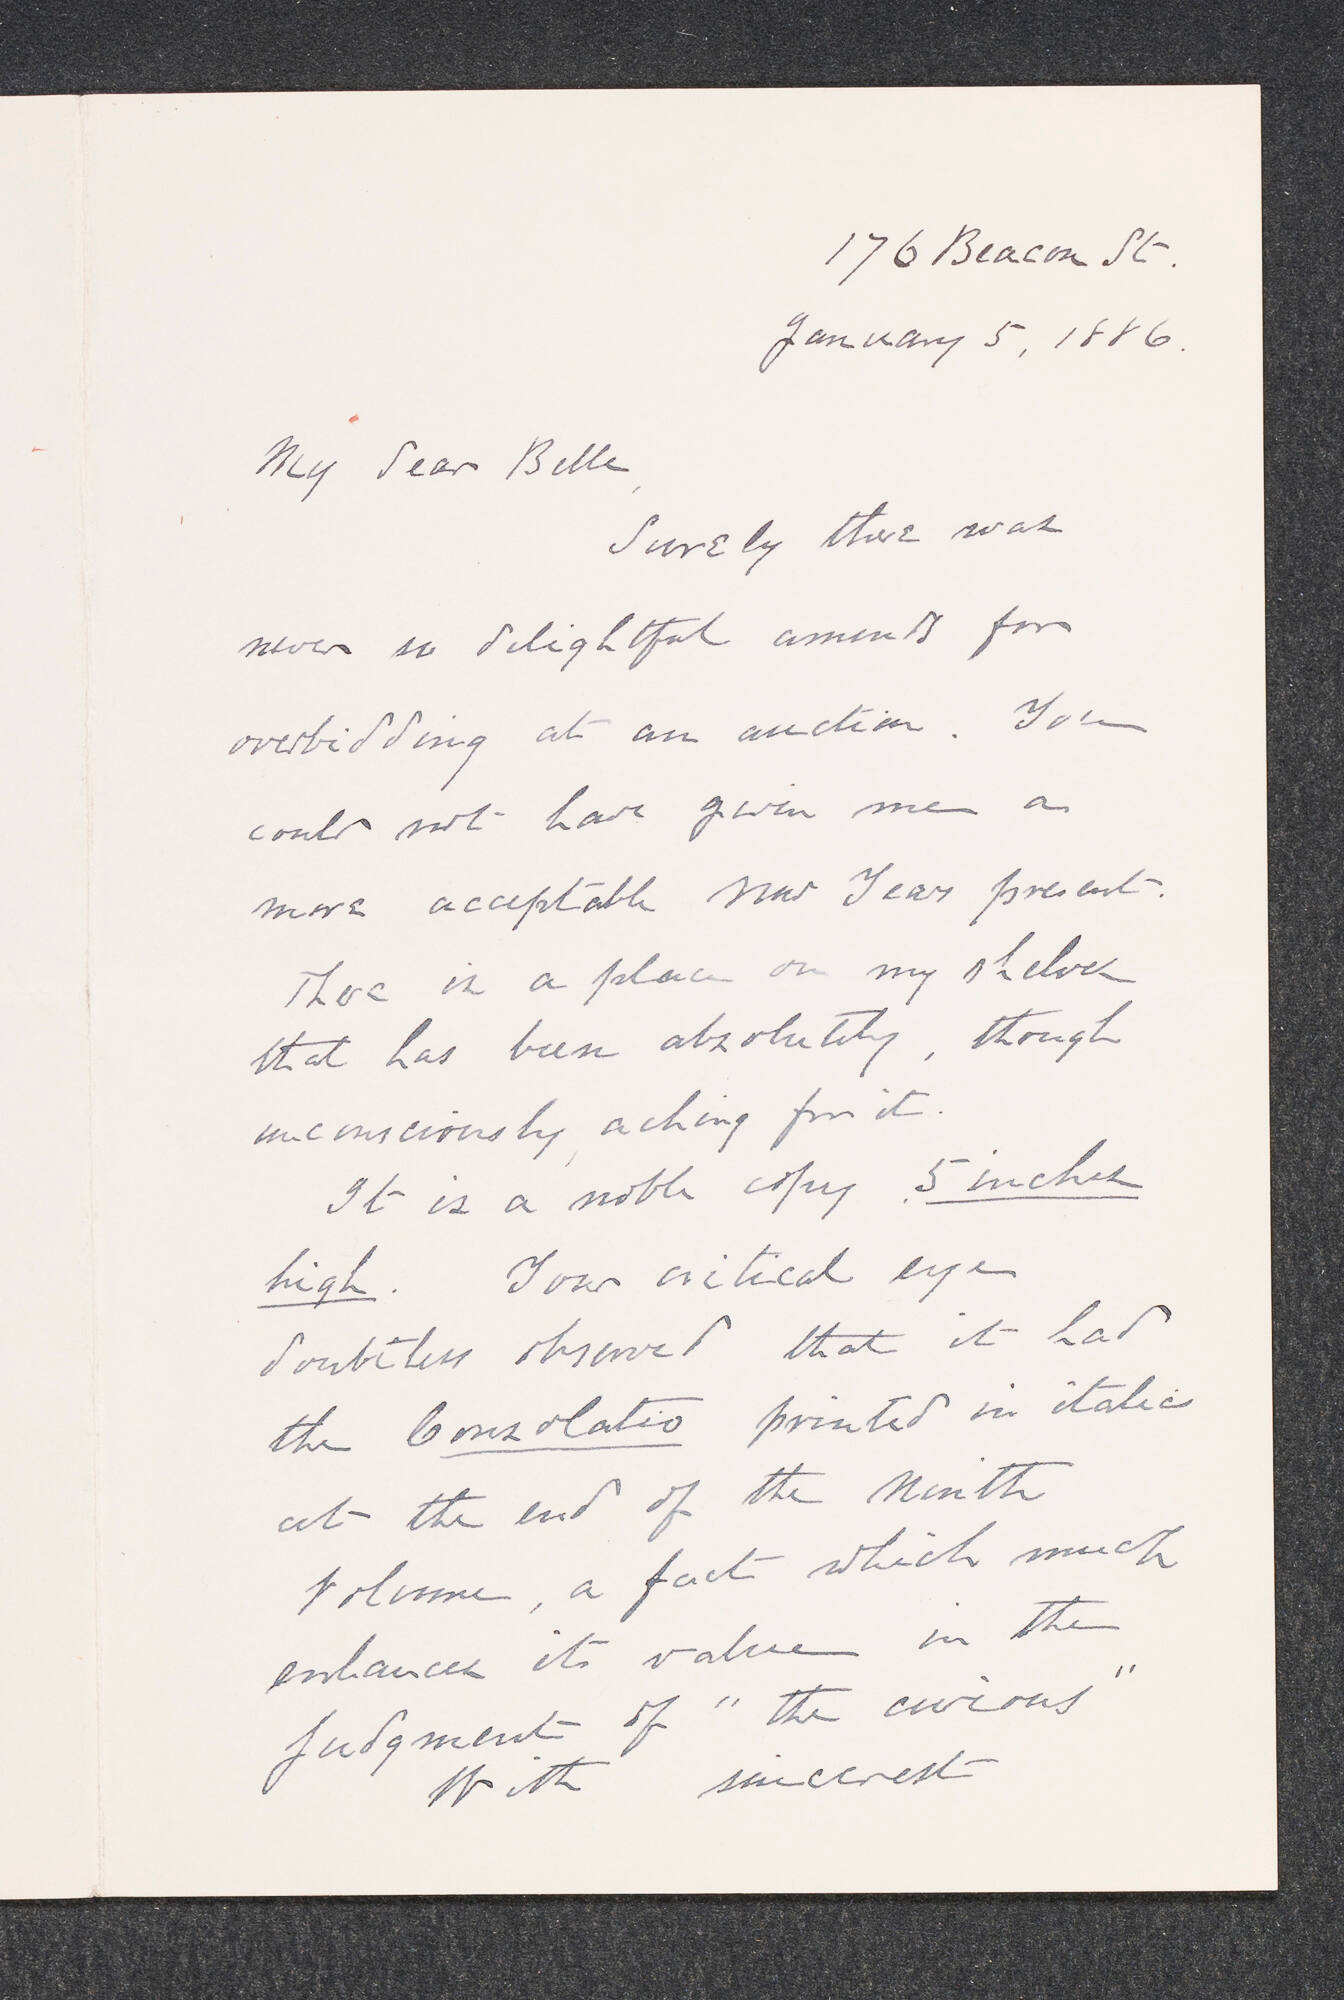 176 Beacon St.
January 5, 1886.
My dear Belle,
Surely there was
never so delightful amends for
overbidding at an auction. You
could not have given me a
more acceptable New Years present.
There is a place on my shelves
that has been absolutely, though
unconsciously, aching for it.
It is a noble copy 5 inches
high. Your critical eye
doubtless observed that it had
the Consolatio printed in italics
at the end of the Ninth
Volume, a fact which much
enhances its value in the
judgment of "the curious"
With sincerest